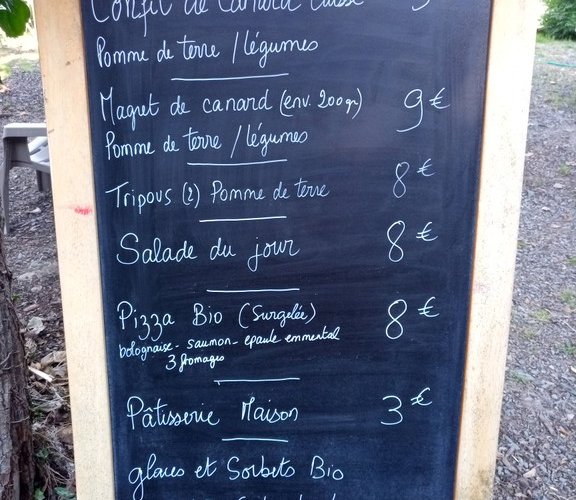 Confit de Canard Cuisse
Pomme de terre / légumes
Magret de canard (env. 200gr) 9€
Pomme de terre / légumes
Tripous (2) Pomme de terre 8€
Salade du jour 8€
Pizza Bio (Surgelée) 8€
bolognaise - saumon - epaule emmental
3 fromages
Pâtisserie Maison 3€
glaces et Sorbets Bio